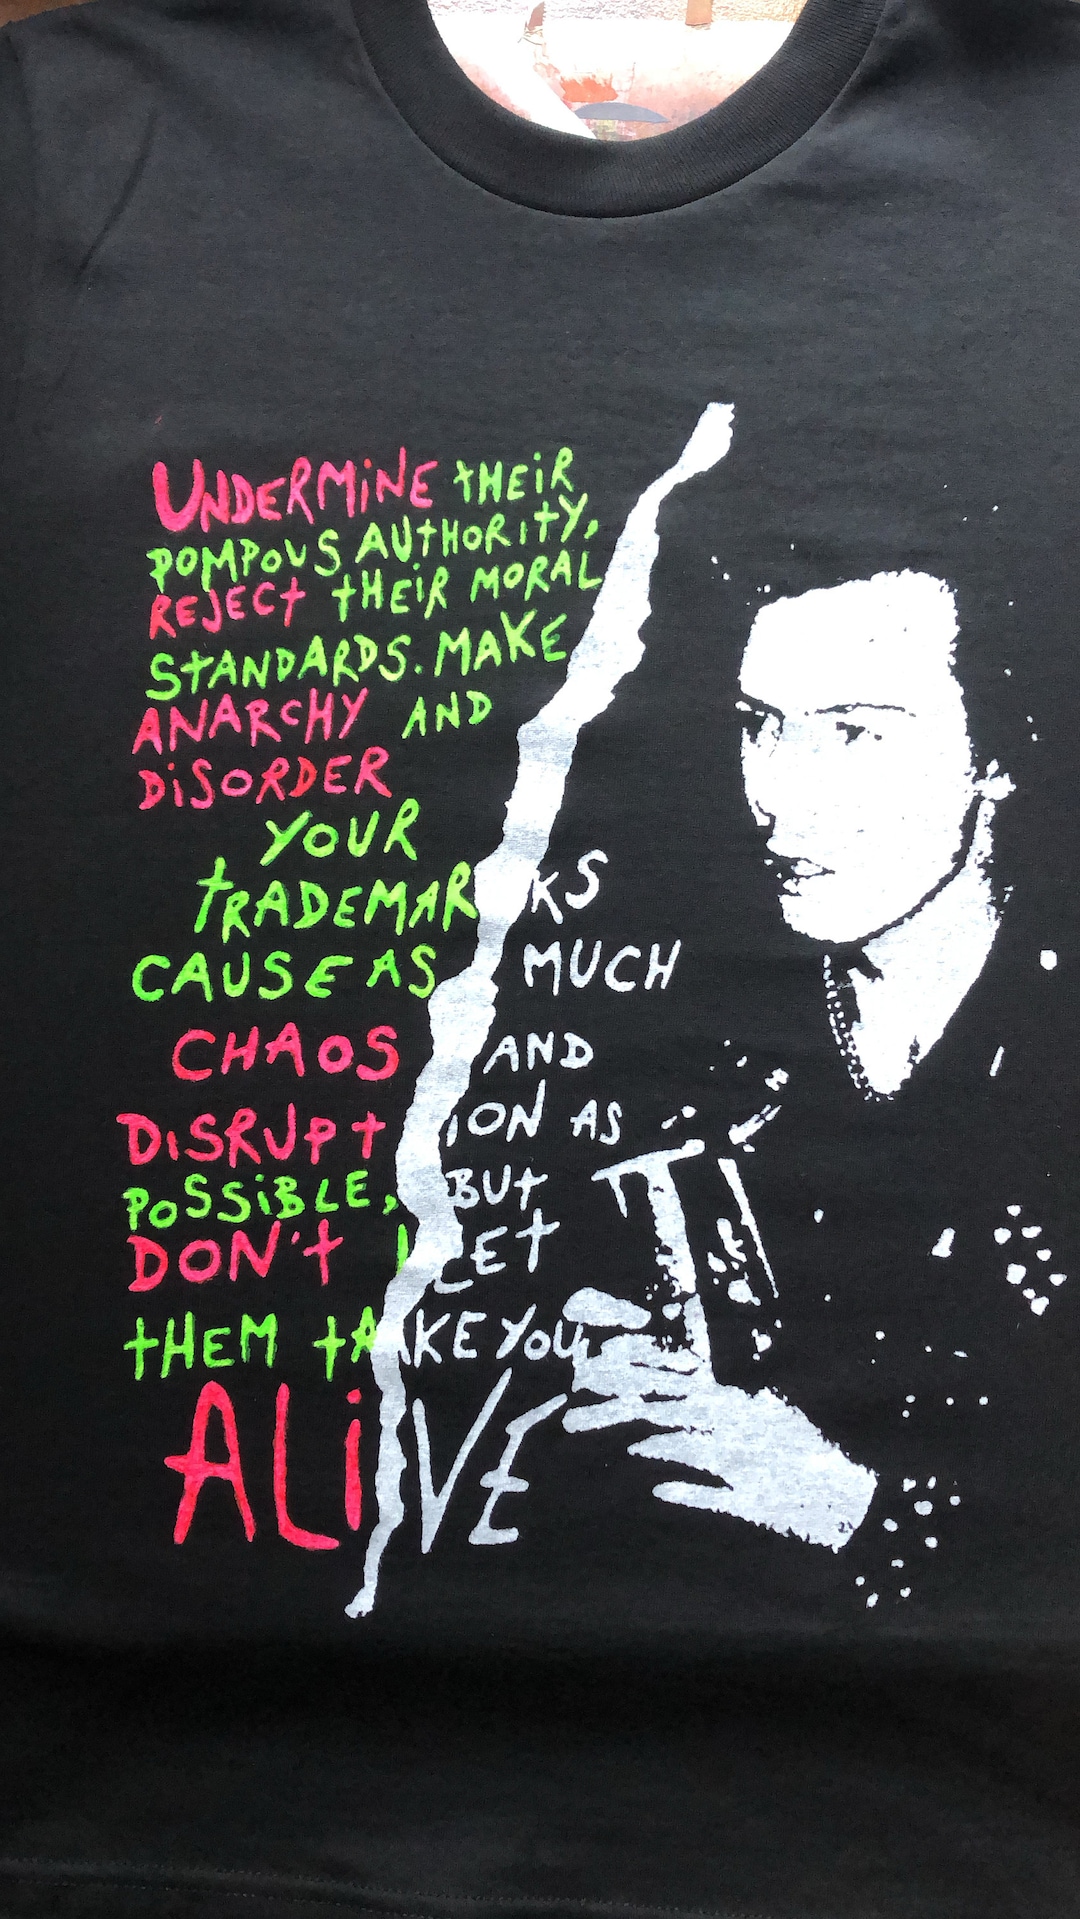 UNDERMiNE tHEiR
POMPOUS AUtHORitY,
REJECt tHEiR MORAL
StANDARDS. MAKE
ANARCHY AND
DiSORDER
YOUR
tRADEMARKS
CAUSE AS MUCH
CHAOS AND
DiSRUPtiON AS
POSSiBLE, BUt
DON't LEt
tHEM tAKE YOU
ALiVE